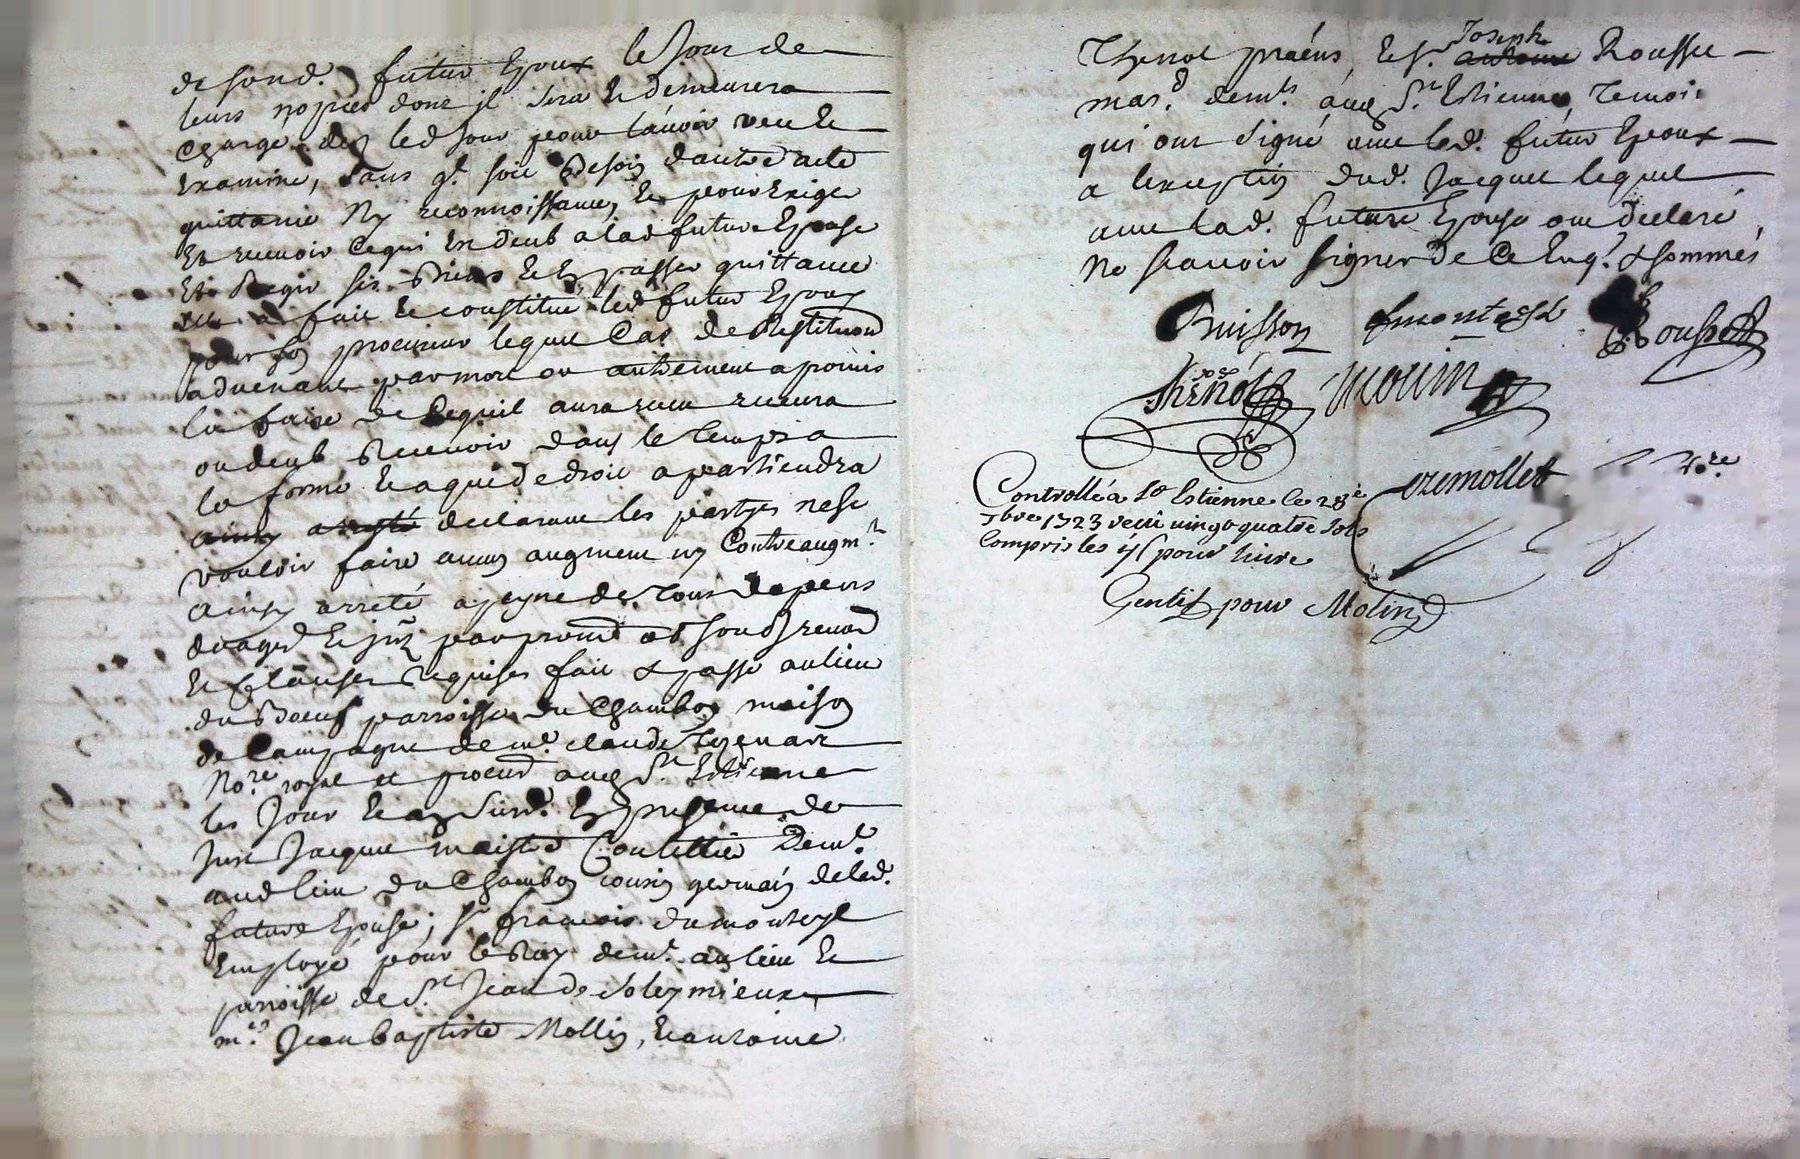 de sond. futur Epoux le Jour de
leurs nopces dont jl sera Et demeurera
Chargé dez led Jour pour lavoir veu Et
Examiné, sans q.l soit Besoin dautre acte
quittance Ny reconnoissance, Et pour Exiger
Et recevoir Cequi En deub a lad future Epouse
Et Regir ses Biens Et En passer quittance
a fait Et constitué led futur Epoux
pour son procureur lequel Cas de Restitution
advenant par mort ou autrement a promis
la faire de Cequil aura receu recevra
ou deub Recevoir dans le temps a
la forme Et a qui de droit apartiendra
declarant les partyes nese
vouloir faire aucun augment ny Contreaugm.t
ainsy arreté a peyne de tous depens
par prom.
Et Clauses Requises fait & passé au lieu
du Boeuf parroisse du Chambon maison
de Campagne de m.e claude Thenart
No.re royal et procur aud S.t Estienne
les Jour Et an Susd. En presence de
Just Jacque maistre Coutellier Dem.t
aud lieu du Chambon cousin germain delad.
future Epouse; s.r francois dumonteyl
Employé pour le Roy dem.t au lieu Et
parroisse de S.t Jean de soleymieux
m.es Jean baptiste Mollin, Et antoine
Thenot praēns, Et s.r Joseph Rousset
mar.d dem.ts aud S.t Estienne, Temoins
qui ont signé avec led. futur Epoux
a lexception dud. Jacque lequel
avec lad. future Epouse ont declaré
Ne scavoir signer de Ce Enq.s & sommés
Buisson dumonteyl Rousset
Thenot Molin
Cremollet No.re
Controllé a S.t Estienne le 28.e
7bre 1723 receu vingt quatre sols
Compris les 4 s pour livre
Gentil pour Molin